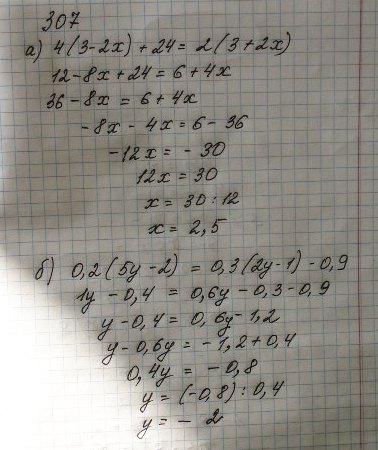 307
а) 4(3-2x)+24=2(3+2x)
12-8x+24=6+4x
36-8x=6+4x
-8x-4x=6-36
-12x=-30
12x=30
x=30:12
x=2,5
б) 0,2(5y-2)=0,3(2y-1)-0,9
1y-0,4=0,6y-0,3-0,9
y-0,4=0,6y-1,2
y-0,6y=-1,2+0,4
0,4y=-0,8
y=(-0,8):0,4
y=-2